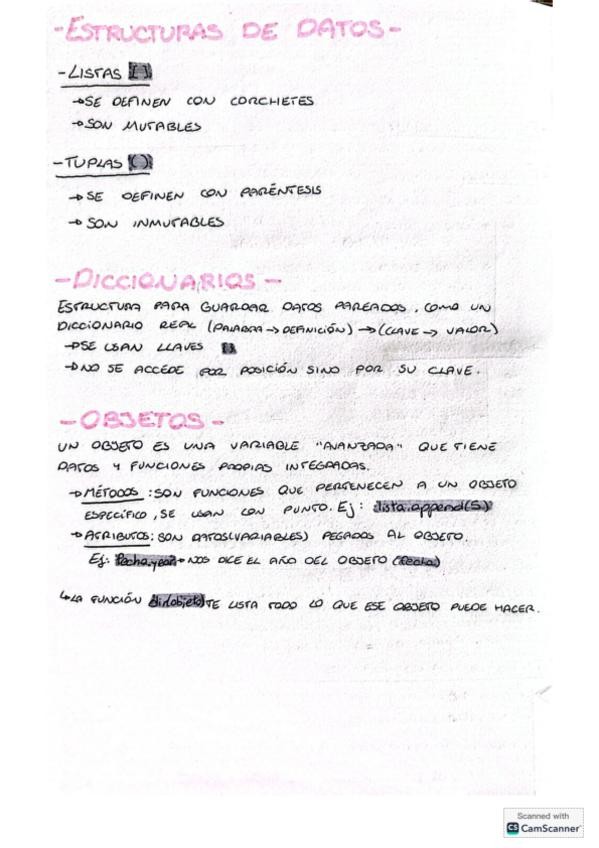 -ESTRUCTURAS DE DATOS-
-LISTAS []
→SE DEFINEN CON CORCHETES
→SON MUTABLES
-TUPLAS ()
→SE DEFINEN CON PARÉNTESIS
→SON INMUTABLES
-DICCIONARIOS-
ESTRUCTURA PARA GUARDAR DATOS PAREADOS, COMO UN
DICCIONARIO REAL (PALABRA→DEFINICIÓN)→(CLAVE→VALOR)
→SE USAN LLAVES {}
→NO SE ACCEDE POR POSICIÓN SINO POR SU CLAVE.
-OBJETOS-
UN OBJETO ES UNA VARIABLE "AVANZADA" QUE TIENE
DATOS Y FUNCIONES PROPIAS INTEGRADAS.
→MÉTODOS: SON FUNCIONES QUE PERTENECEN A UN OBJETO
ESPECÍFICO, SE USAN CON PUNTO. Ej: lista.append(5)
→ATRIBUTOS: SON DATOS(VARIABLES) PEGADOS AL OBJETO.
Ej: fecha.year→NOS DICE EL AÑO DEL OBJETO (fecha)
↳LA FUNCIÓN dir(objeto) TE LISTA TODO LO QUE ESE OBJETO PUEDE HACER.
Scanned with
CS CamScanner